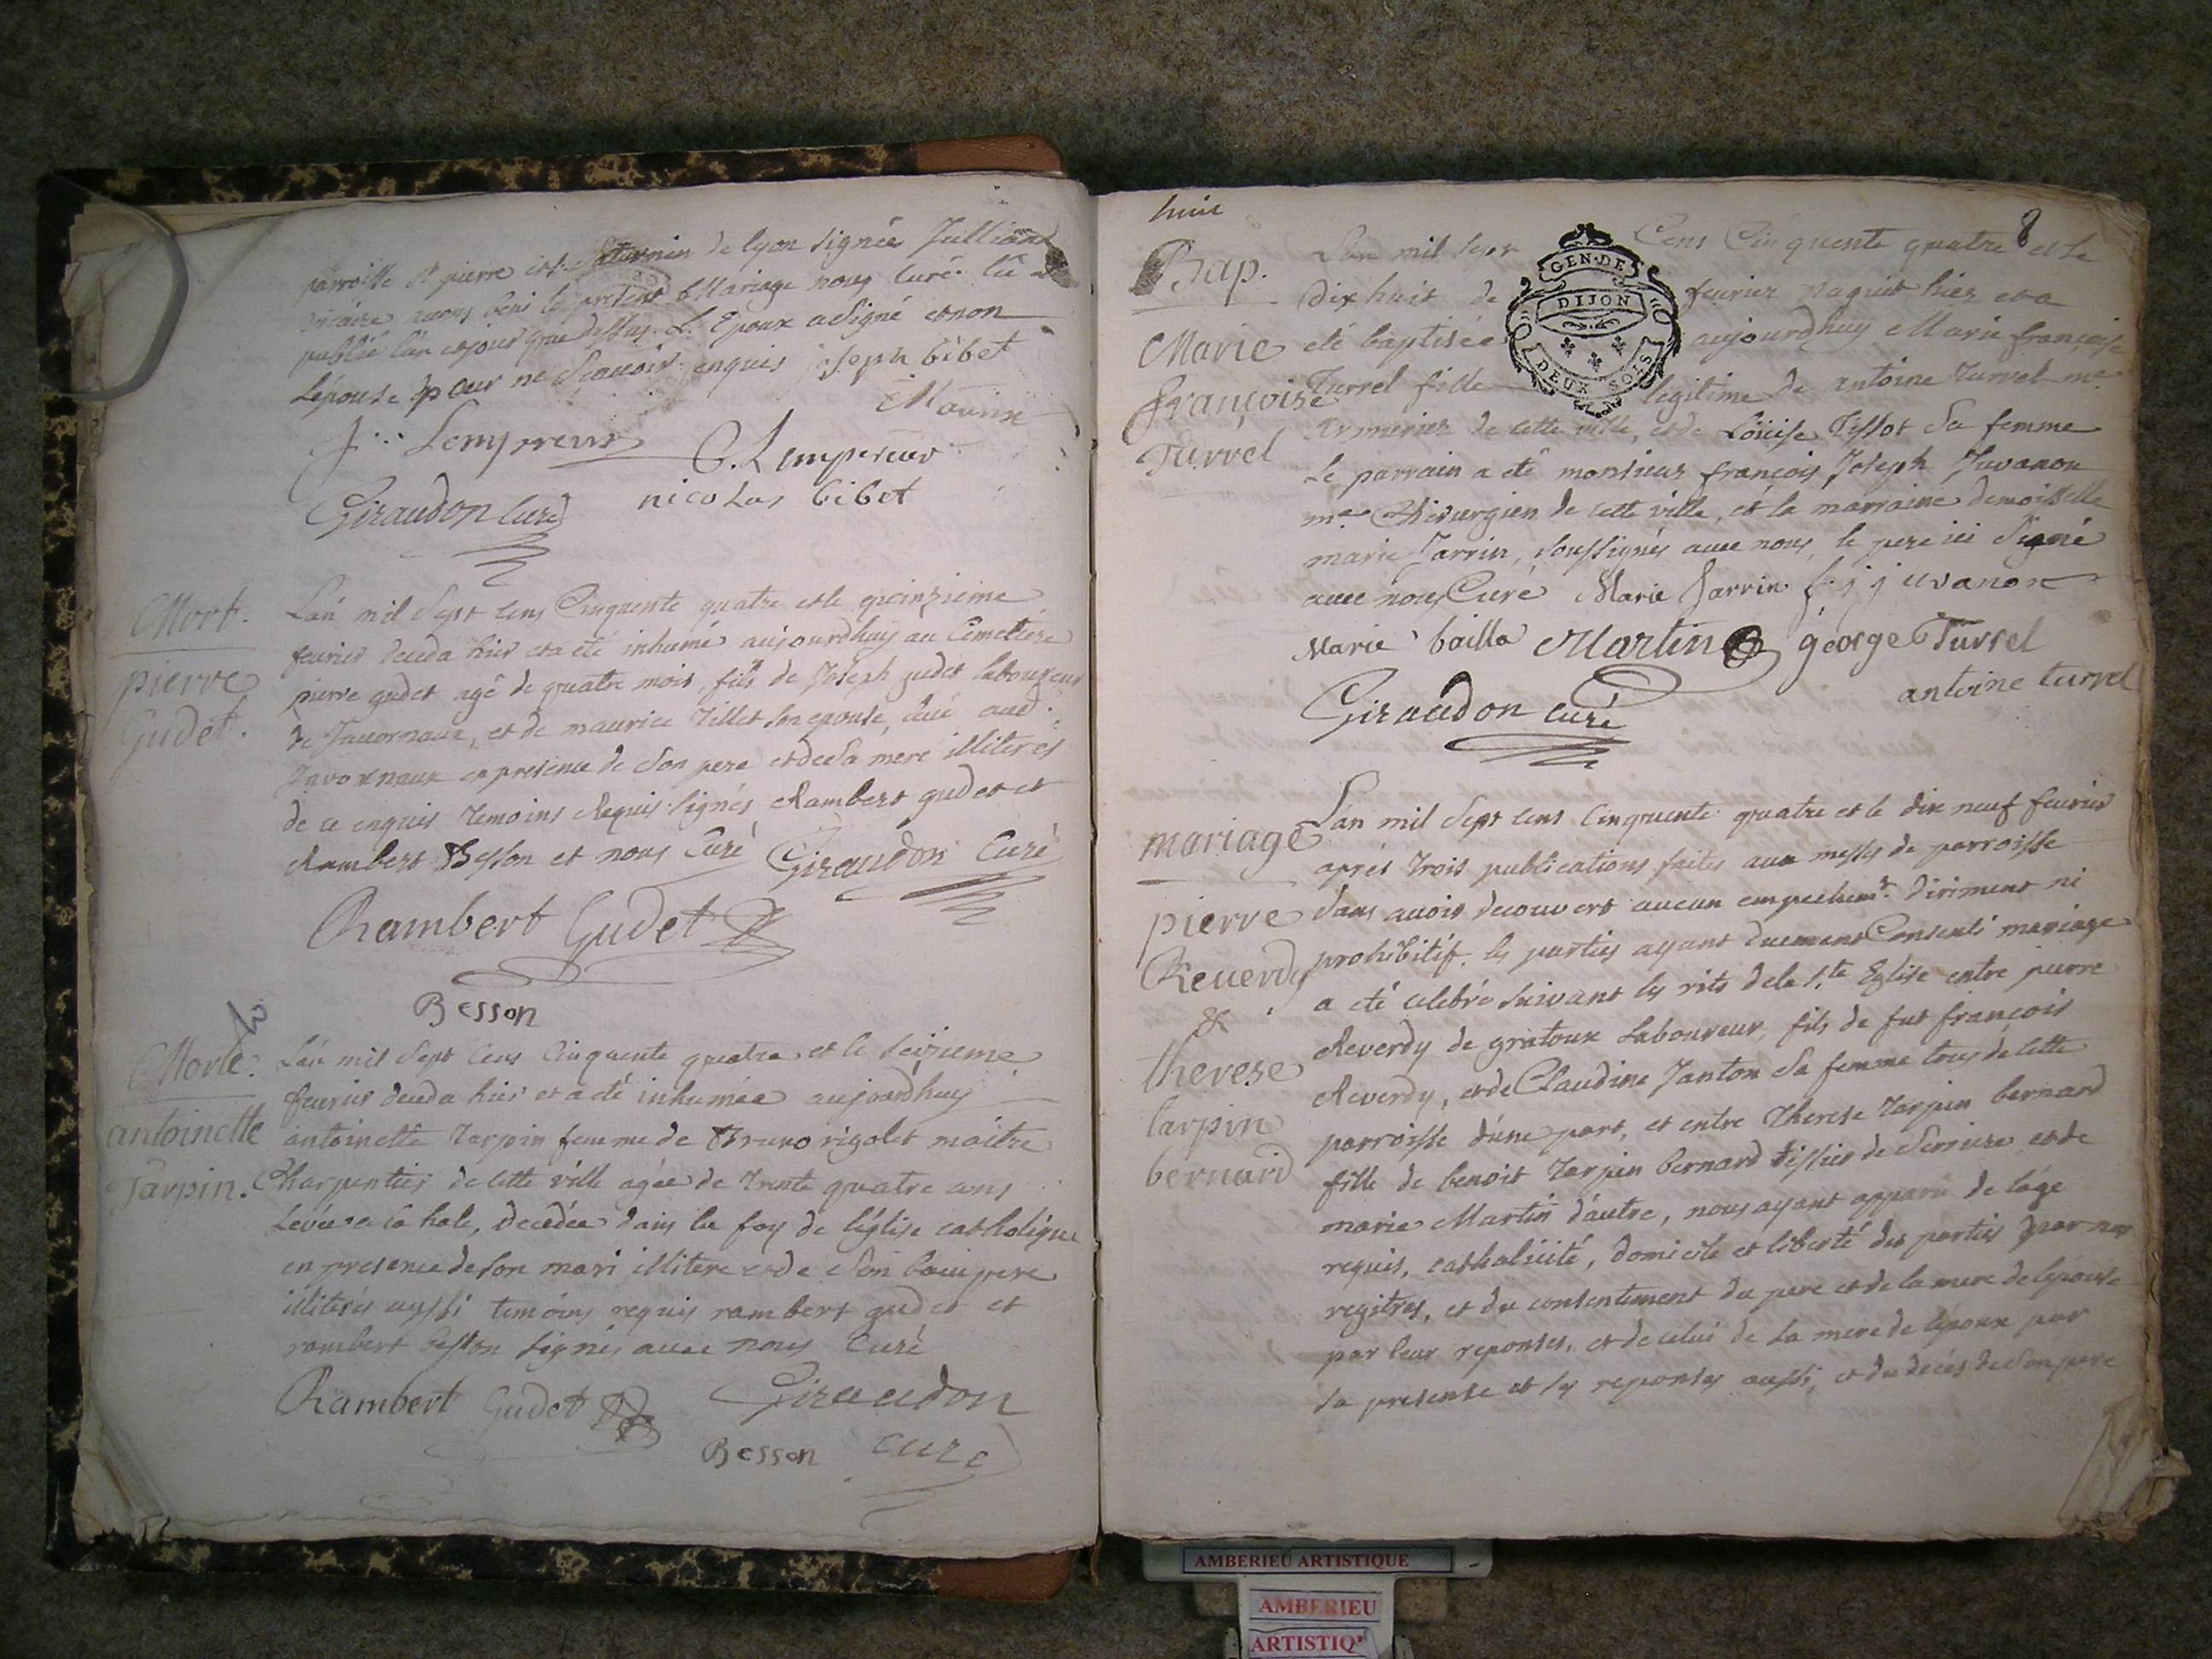 parroisse St pierre et St Saturnin de lyon signées Julliand
vicaire avons beni le present Mariage nous Curé. lû et
publié l'an et jour que dessus. L'Epoux a signé et non
l'épouse pour ne sçavoir enquis joseph bibet
Mavrin
J. Lempereur C. Lempereur
Giraudon Curé nicolas bibet
Mort.
pierre
Gudet.
L'an mil sept cens Cinquente quatre et le quinzieme
fevrier deceda hier et a été inhumé aujourdhuy au Cimetiere
pierre gudet agé de quatre mois, fils de Joseph gudet laboureur
de Javornaux, et de maurice Tillet son epouse,
Javornaux en presence de son pere et de sa mere illiterés
de ce enquis temoins requis signés Rambert gudet et
Rambert Besson et nous Curé Giraudon Curé
Rambert Gudet
Besson
Morte.
antoinette
Tarpin.
L'an mil sept cens Cinquente quatre et le seizieme
fevrier deceda hier et a été inhumée aujourdhuy
antoinette Tarpin femme de Bruno rigolet maitre
Charpentier de cette ville agée de trente quatre ans
Levée a la hale, decedée dans la foy de l'église catholique
en presence de son mari illitere et de son beaupere
illiterés aussi temoins requis rambert gudet et
rambert besson signés avec nous Curé
Rambert Gudet Giraudon
Besson curé
huit
8
Bap.
Marie
françoise
Turrel
L'an mil sept Cens Cinquente quatre et le
dix huit de fevrier naquit hier et a
eté baptisée aujourdhuy Marie françoise
Turrel fille legitime de antoine Turrel me
Armurier de cette ville, et de Loüise Tissot sa femme
Le parrain a eté monsieur françois Joseph Juvanon
me Chirurgien de cette ville, et la marraine demoisselle
marie Jarrin, soussignés avec nous, le pere ici signé
avec nous Curé Marie Jarrin f. j juvanon
Marie bailla Martin george Turrel
antoine turrel
Giraudon curé
GEN·DE
DIJON
DEUX SOLS
mariage
pierre
Reverdy
&
therese
tarpin
bernard
L'an mil sept cens Cinquente quatre et le dix neuf fevrier
aprés trois publications faites aux messes de parroisse
sans avoir decouvert aucun empechemt. diriment ni
prohibitif. les parties ayant duement Consenti mariage
a eté celebré suivant les rits de la Ste Eglise entre pierre
Reverdy de gratoux Laboureur, fils de fut françois
Reverdy, et de Claudine Janton sa femme tous de cette
parroisse d'une part, et entre Therese tarpin bernard
fille de benoit tarpin bernard tissier de Serriere et de
marie Martin d'autre, nous ayant apparu de l'age
requis, catholicité, domicile et liberté des parties par nos
regitres, et du consentement du pere et de la mere de lepouse
par leur reponses, et de celui de la mere de lepoux par
sa presence et ses reponses aussi, et du decés de son pere
AMBERIEU ARTISTIQUE
AMBERIEU
ARTISTIQ